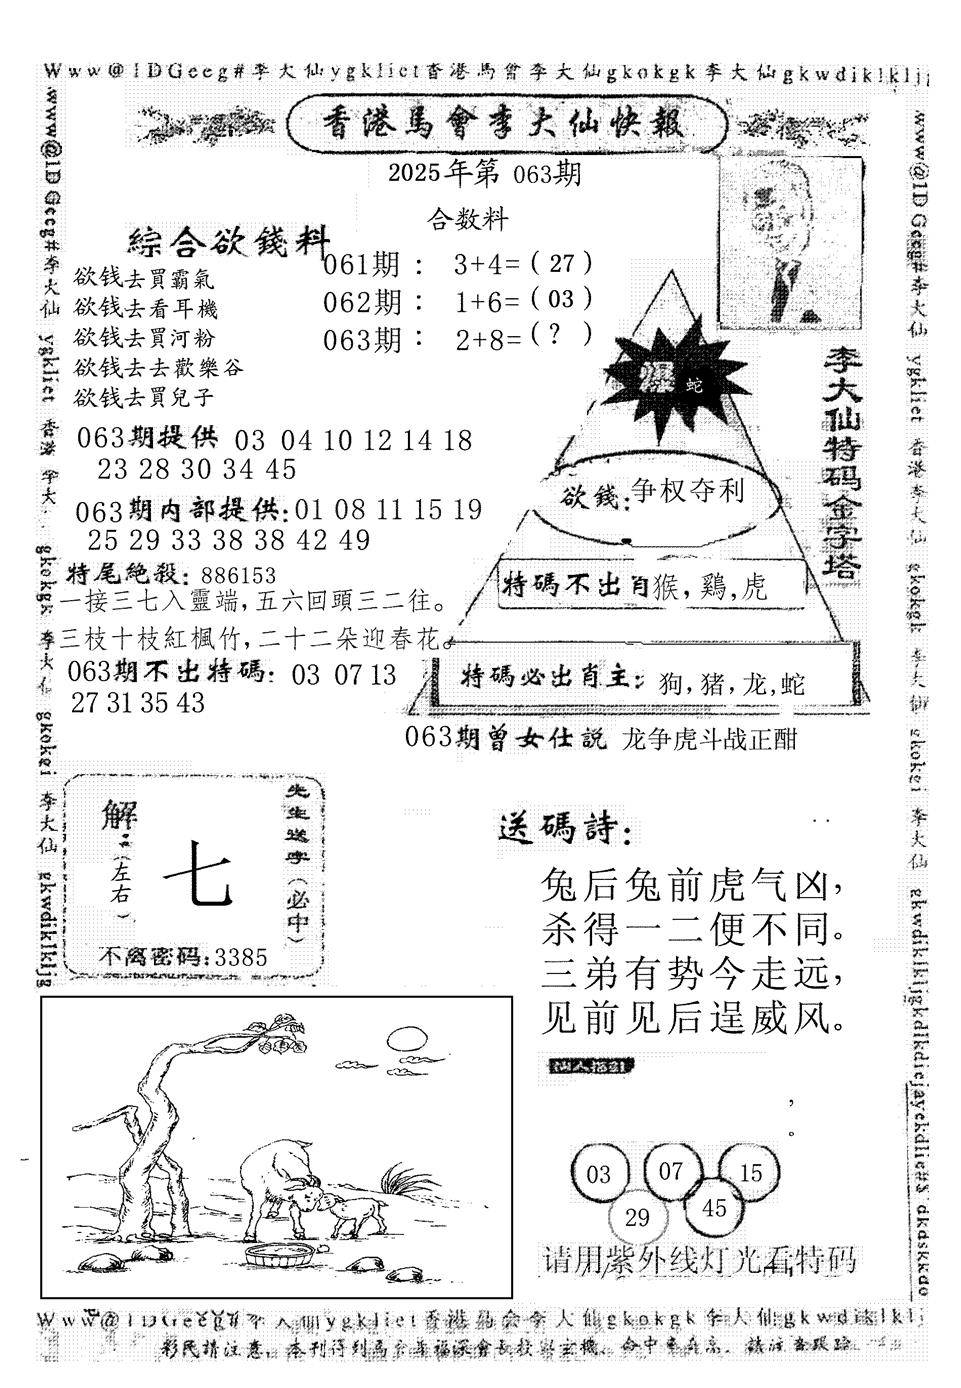 Www@1DGeeg#李大仙ygkliet香港馬會李大仙gkokgk李大仙gkwdiklkljg
香港馬會李大仙快報
2025年第 063期
合数料
綜合欲錢料
061期： 3+4=（27）
062期： 1+6=（03）
063期： 2+8=（?）
欲钱去買霸氣
欲钱去看耳機
欲钱去買河粉
欲钱去去歡樂谷
欲钱去買兒子
爆 蛇
李大仙特码金字塔
063期提供 03 04 10 12 14 18
23 28 30 34 45
欲錢:争权夺利
063期内部提供:01 08 11 15 19
25 29 33 38 38 42 49
特尾絶殺: 886153
特碼不出肖猴,鷄,虎
一接三七入靈端,五六回頭三二往。
三枝十枝紅楓竹,二十二朵迎春花。
063期不出特碼: 03 07 13
27 31 35 43
特碼必出肖主: 狗,猪,龙,蛇
063期曾女仕説 龙争虎斗战正酣
先生送字(必中)
解:(左右)
七
不离密码:3385
送碼詩:
兔后兔前虎气凶,
杀得一二便不同。
三弟有势今走远,
见前见后逞威风。
03 07 15
29 45
请用紫外线灯光看特码
Www@1DGeeg#李大仙ygkliet香港马会李大仙gkokgk李大仙gkwdiklklj